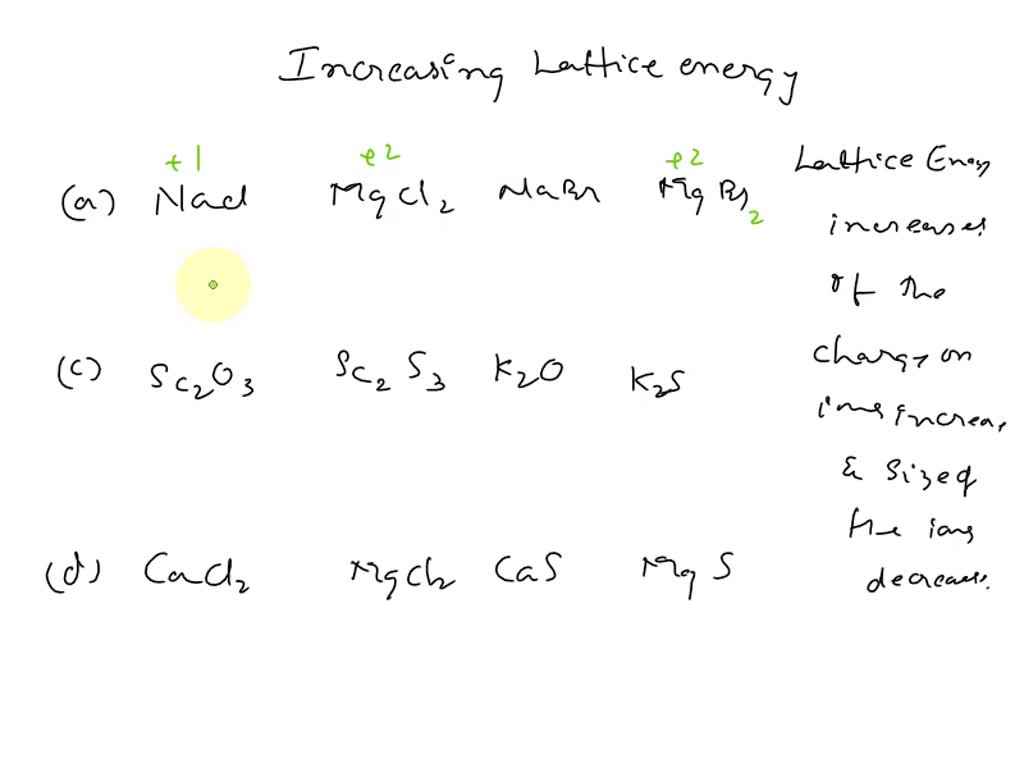 Increasing Lattice energy
+1 +2 +2
(a) NaCl MgCl2 NaBr MgBr2
(c) Sc2O3 Sc2S3 K2O K2S
(d) CaCl2 MgCl2 CaS MgS
Lattice Energy
increases
if the
charge on
ions increas,
& size of
the ions
decreases.